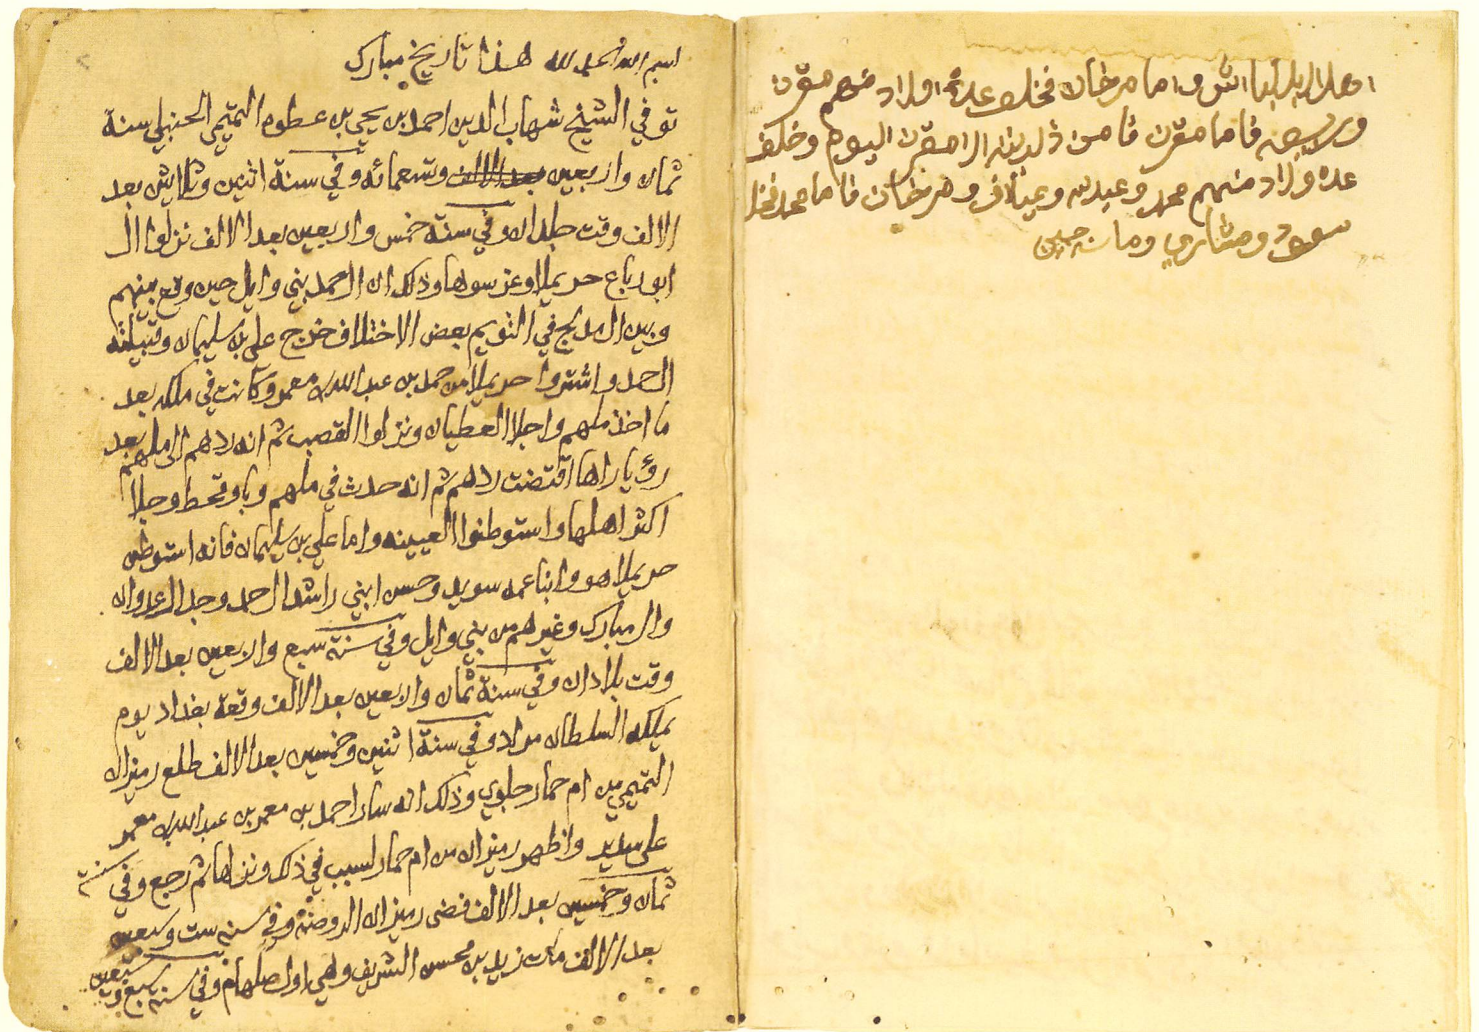 اهل البلد اما مرخان فخلف عدة اولاد منهم مقرن
وربيعه فاما مقرن فا من ذريته ال مقرن اليوم وخلف
عده ولاد منهم محمد وعبدلله وعياف ومرخان فاما محمد فخلف
سعود ومشاري ومات
بسم الله الحمد لله هذا تاريخ مبارك
توفي الشيخ شهاب الدين احمد بن يحيى بن عطوه التميمي الحنبلي سنة
ثمان واربعين بعد الالف وتسعمائه وفي سنة اثنين وثلاثين بعد
الالف وقت جلدان وفي سنة خمس واربعين بعد الالف نزلوا ال
ابو رباع حريملا وغرسوها وذلك ان ال حمد بني وايل حين وقع بينهم
وبين ال مدلج في التويم بعض الاختلاف خرج علي بن سليمان وقبيلته
ال حمد واشتروا حريملا من حمد بن عبدالله بن معمر وكانت في ملكه بعد
ما اخذ ملهم واجلا العطيان ونزلوا القصب ثم انه ردهم الى ملهم بعد
رؤيا راها اقتضت ردهم ثم انه حدث في ملهم وبا وقحط وجلا
اكثر اهلها واستوطنوا العيينه واما علي بن سليمان فانه استوطن
حريملا هو وابنا عمه سويد وحسن ابني راشد ال حمد وجد ال عدوان
وال مبارك وغيرهم من بني وايل وفي سنة سبع واربعين بعد الالف
وقت بلادان وفي سنة ثمان واربعين بعد الالف وقعة بغداد يوم
يملكه السلطان مراد وفي سنة اثنين وخمسين بعد الالف طلع رميزان
التميمي من ام حمار جلوي وذلك انه سار احمد بن معمر بن عبدالله بن معمر
على سدير واظهر رميزان من ام حمار لسبب في ذلك ونزلها ثم رجع وفي سنة
ثمان وخمسين بعد الالف فضى رميزان الروضة وفي سنه ست وسبعين
بعد الالف مات زيد بن محسن الشريف وهي اول صلهام وفي سنة سبع وسبعين